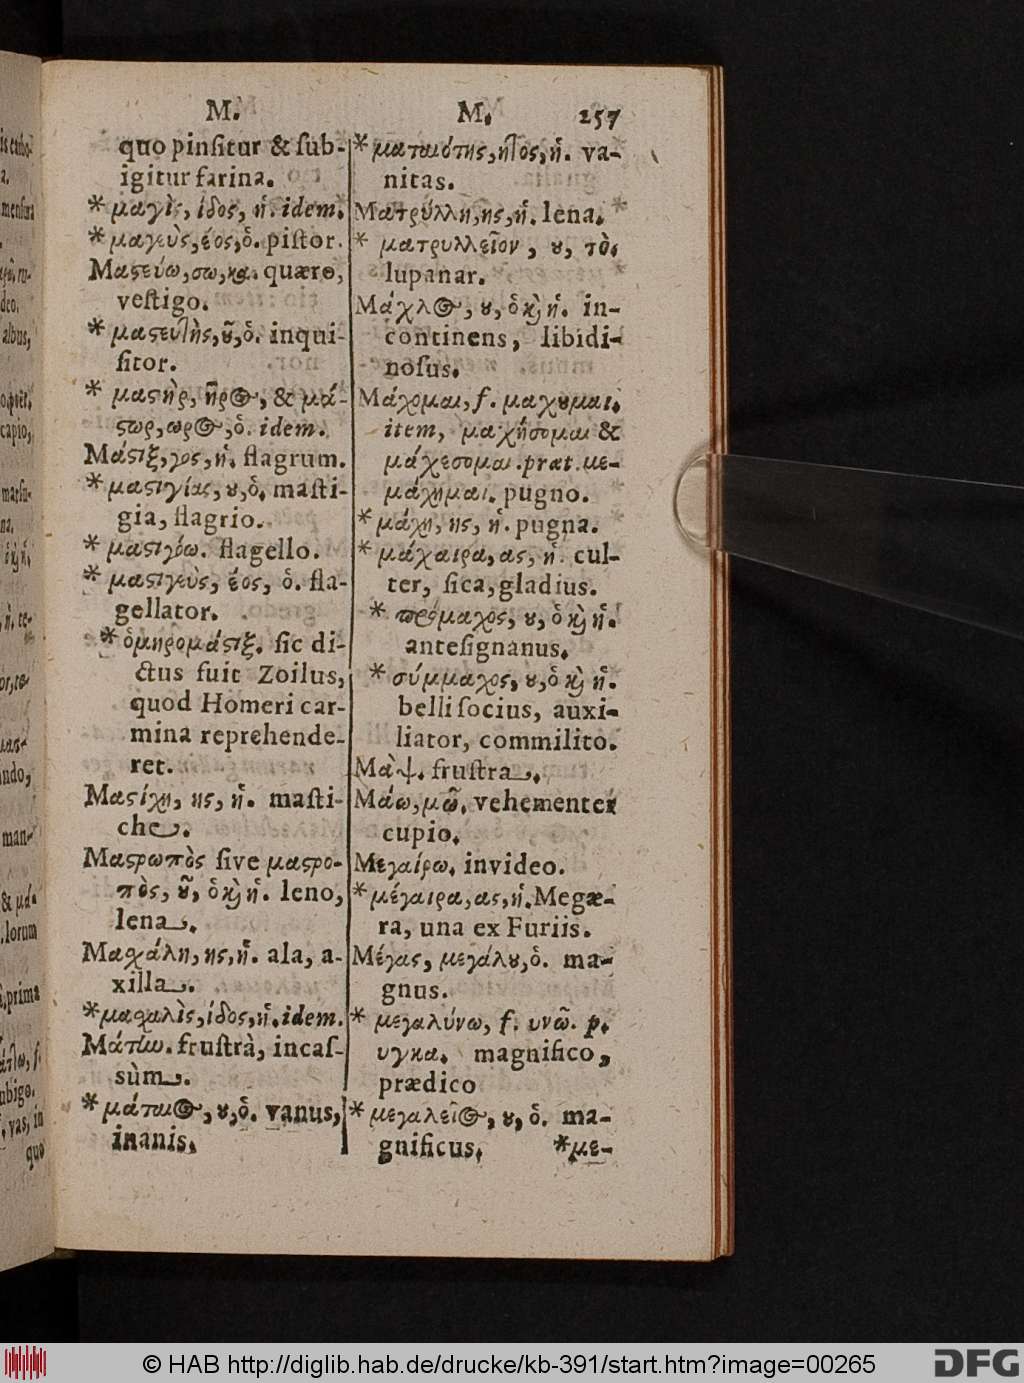 M.
quo pinſitur & ſub-
igitur farina.
* μαγὶς, ίδος, ἡ. idem.
* μαγεὺς, έος, ὁ. piſtor.
Μαϛεύω, σω, κα. quæro,
veſtigo.
* μαϛευτὴς, ȣ͂, ὁ. inqui-
ſitor.
* μαϛὴρ, ῆρος, & μά-
ϛωρ, ωρος, ὁ. idem.
Μάϛιξ, γος, ἡ. flagrum.
* μαϛιγίας, ȣ, ὁ. maſti-
gia, flagrio.
* μαϛιγόω. flagello.
* μαϛιγεὺς, έος, ὁ. fla-
gellator.
* ὁμηρομάϛιξ. ſic di-
ctus fuit Zoilus,
quod Homeri car-
mina reprehende-
ret.
Μαϛίχη, ης, ἡ. maſti-
che.
Μαϛρωπὸς ſive μαϛρο-
πὸς, ȣ͂, ὁ κὴ ἡ. leno,
lena.
Μαχάλη, ης, ἡ. ala, a-
xilla.
* μαχαλὶς, ίδος, ἡ. idem.
Μάτίω. fruſtrà, incaſ-
sùm.
* μάταιος, ȣ, ὁ. vanus,
inanis.
M. 257
* ματαιότης, ητος, ἡ. va-
nitas.
Ματρύλλη, ης, ἡ. lena.
* ματρυλλεῖον, ȣ, τὸ.
lupanar.
Μάχλος, ȣ, ὁ κὴ ἡ. in-
continens, libidi-
noſus.
Μάχομαι, f. μαχȣμαι.
item, μαχήσομαι &
μάχεσομαι. præt. με-
μάχημαι. pugno.
* μάχη, ης, ἡ. pugna.
* μάχαιρα, ας, ἡ. cul-
ter, ſica, gladius.
* πρόμαχος, ȣ, ὁ κὴ ἡ.
anteſignanus.
* σύμμάχος, ȣ, ὁ κὴ ἡ.
belli ſocius, auxi-
liator, commilito.
Μὰψ. fruſtra.
Μάω, μῶ. vehementer
cupio.
Μεγαίρω. invideo.
* μέγαιρα, ας, ἡ. Megæ-
ra, una ex Furiis.
Μέγας, μεγάλȣ, ὁ. ma-
gnus.
* μεγαλύνω, f. υνῶ. p.
υγκα. magnifico,
prædico
* μεγαλεῖος, ȣ, ὁ. ma-
gnificus. *με-
© HAB http://diglib.hab.de/drucke/kb-391/start.htm?image=00265
DFG